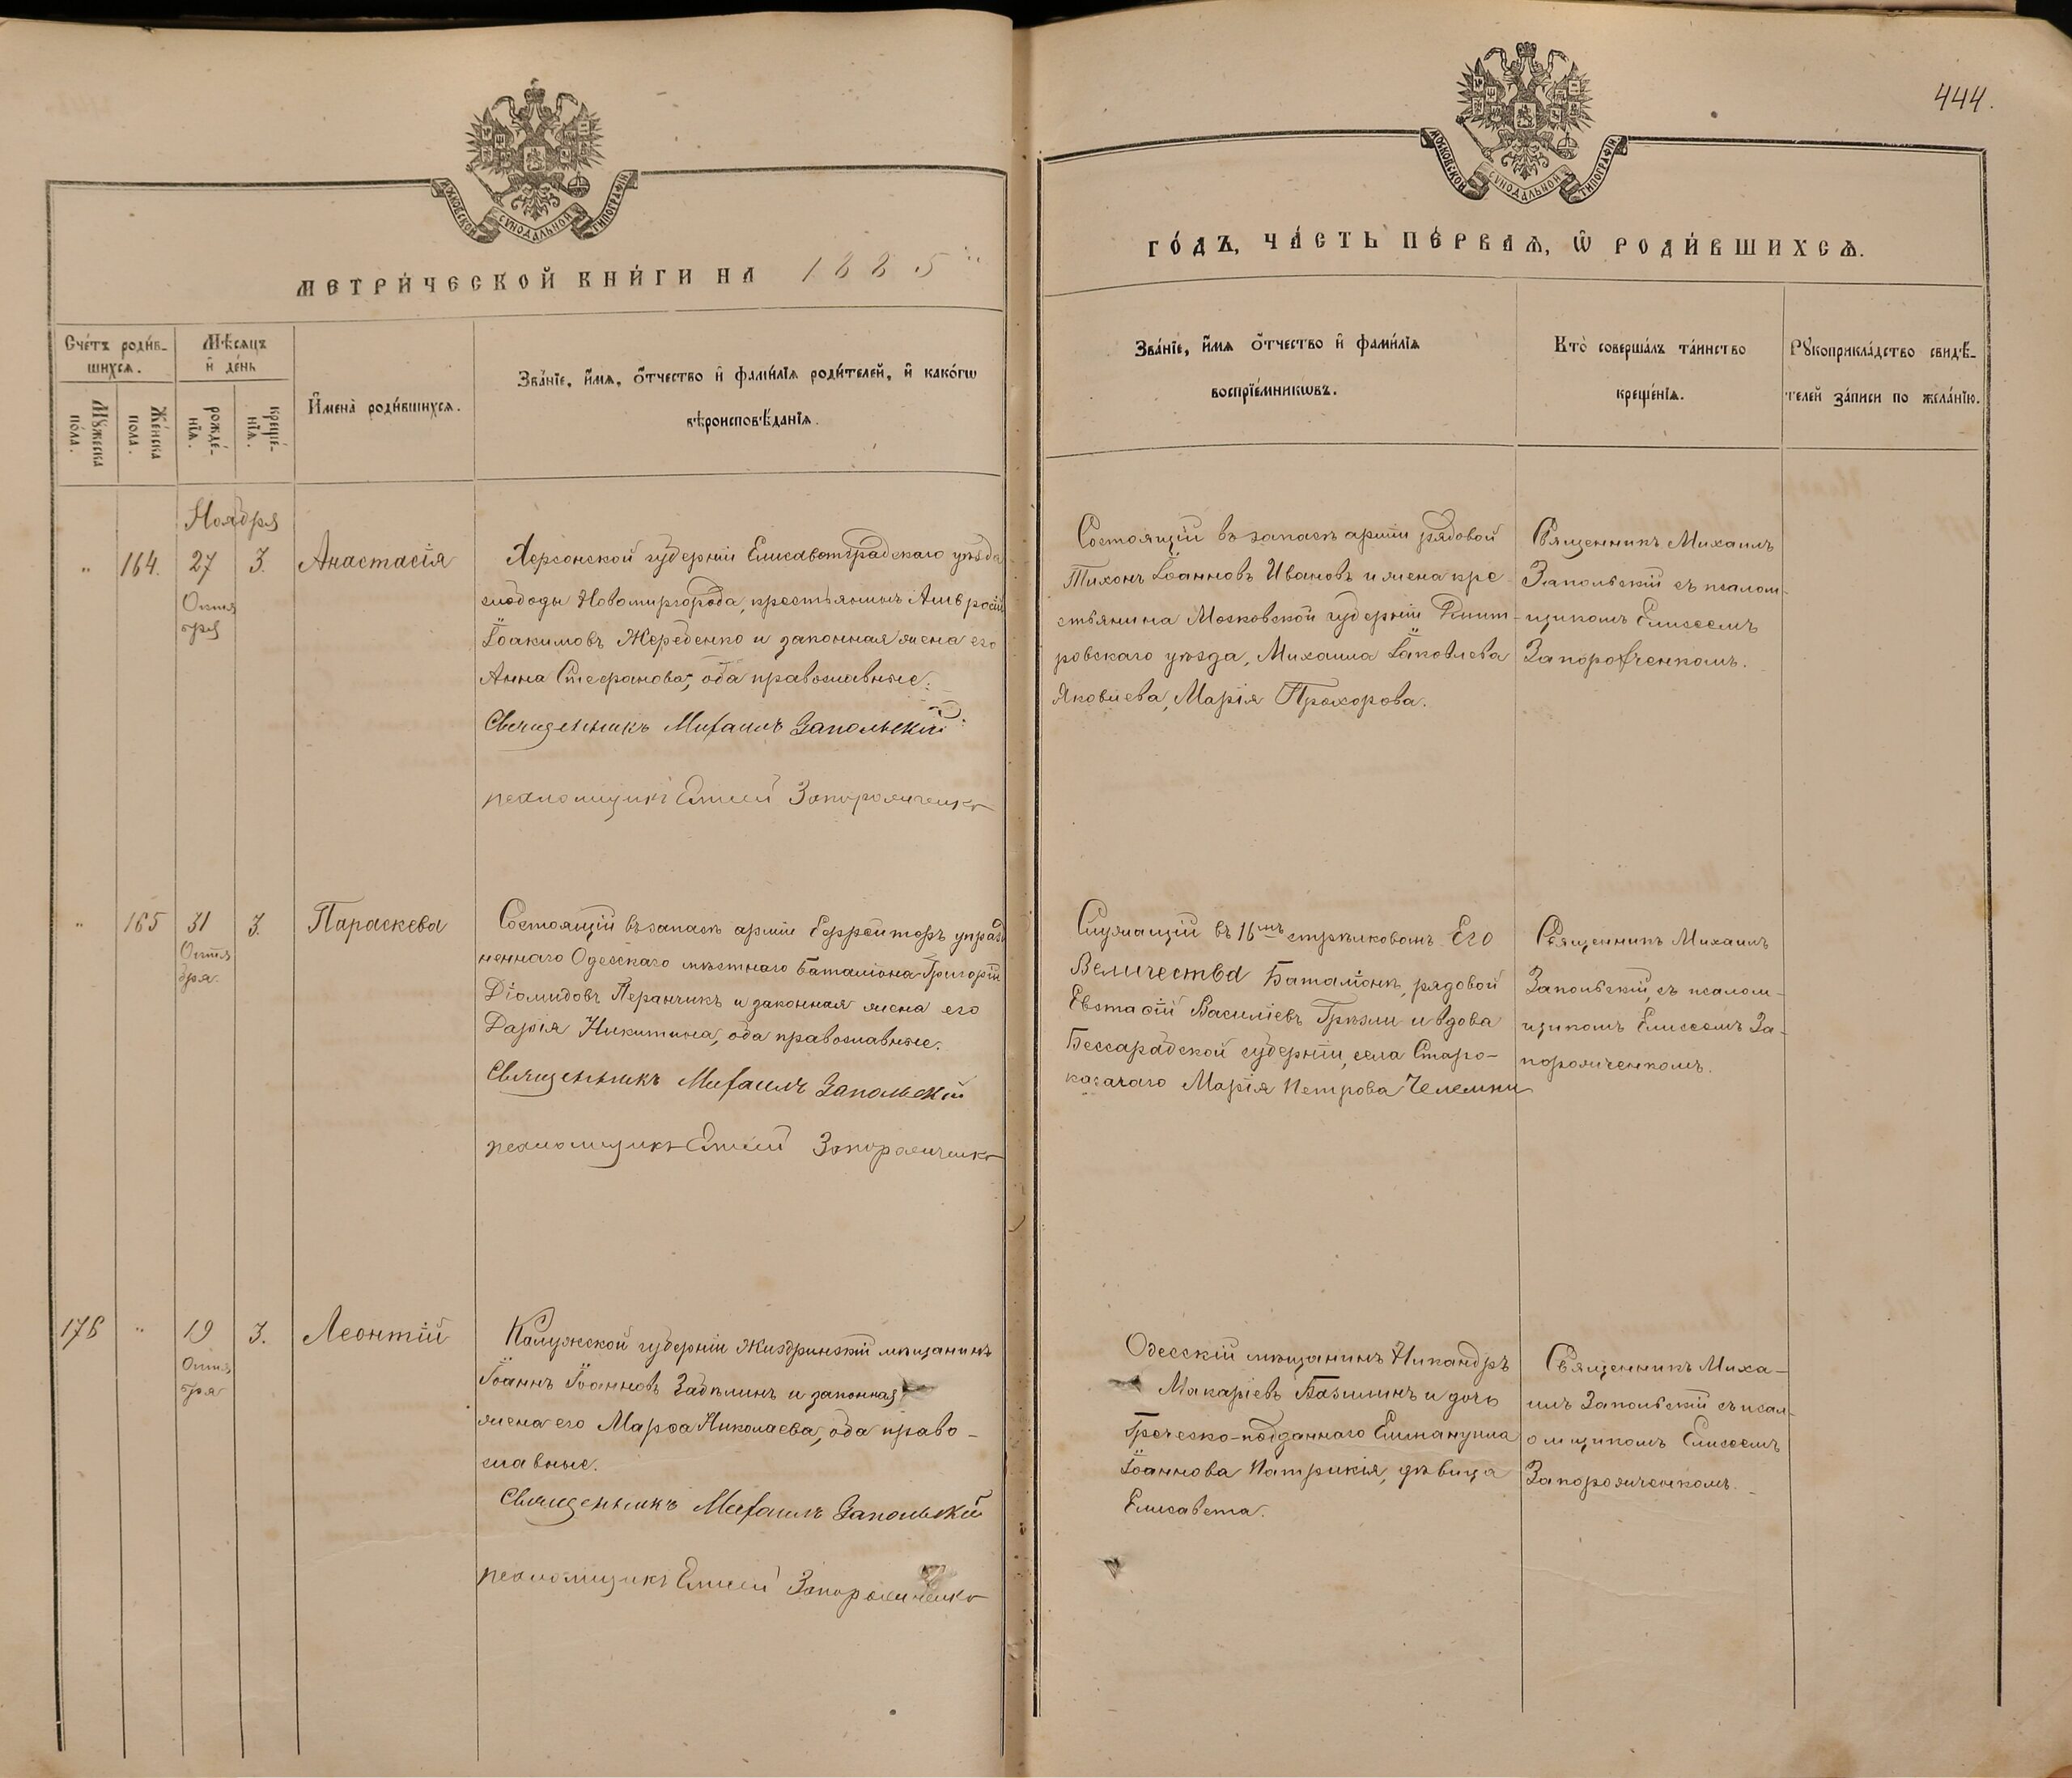 444.
МОСКОВСКОЙ СѴНОДАЛЬНОЙ ТИПОГРАФІИ
МОСКОВСКОЙ СѴНОДАЛЬНОЙ ТИПОГРАФІИ
МЕТРИ́ЧЕСКОЙ КНИ́ГИ НА 1885
ГО́ДЪ, ЧА́СТЬ ПЕ́РВАѦ, Ѿ РОДИ́ВШИХСѦ.
Сче́тъ роди́в-
шихсѧ.
Мꙋ́жеска
по́ла.
Же́нска
пола.
Мѣ́сѧцъ
и҆ де́нь
рожде́-
нїѧ.
креще́-
нїѧ.
И҆мена̀ роди́вшихсѧ.
Зва́нїе, и҆́мѧ, ѻ҆́тчество и҆ фами́лїѧ роди́телей, и҆ како́гѡ
вѣроисповѣ́данїѧ.
Зва́нїе, и҆́мѧ ѻ҆́тчество и҆ фами́лїѧ
воспрїе́мникѡвъ.
Кто̀ соверша́лъ та́инство
креще́нїѧ.
Рꙋкоприкла́дство свидѣ́-
телей за́писи по жела́нїю.
Ноября
„ 164. 27 3. Анастасія
Октя
бря
Херсонской губерніи Елисаветградскаго уѣзда
слободы Новомиргорода, крестьянинъ Амвросій
Іоакимовъ Жереденко и законная жена его
Анна Стефанова, оба православные.
Священникъ Михаилъ Запольскій
псаломщикъ Елисей Запорожченко
Состоящій въ запасѣ арміи рядовой
Тихонъ Іоанновъ Ивановъ и жена кре
стьянина Московской губерніи Дмит-
ровскаго уѣзда, Михаила Іаковлева
Яковлева, Марія Прохорова.
Священникъ Михаилъ
Запольскій съ псалом-
щикомъ Елисеемъ
Запорожченкомъ.
„ 165 31 3. Параскева
Октя
бря.
Состоящій въ запасѣ арміи Ефрейторъ упразд
неннаго Одесскаго мѣстнаго баталіона Григорій
Діомидовъ Перанчикъ и законная жена его
Дарія Никитина, оба православные.
Священникъ Михаилъ Запольскій
псаломщикъ Елисей Запорожченко
Служащій въ 16мъ стрѣлковомъ Его
Величества Баталіонѣ, рядовой
Евстафій Василіевъ Грѣзли и вдова
Бессарабской губерніи, села Старо-
казачаго Марія Петрова Челемпи
Священникъ Михаилъ
Запольскій, съ псалом-
щикомъ Елисеемъ За-
порожченкомъ.
176 „ 19 3. Леонтій
Октя
бря
Калужской губерніи Жиздринскій мѣщанинъ
Іоаннъ Іоанновъ Забѣлинъ и законная
жена его Марѳа Николаева, оба право-
славные.
Священникъ Михаилъ Запольскій
псаломщикъ Елисей Запорожченко
Одесскій мѣщанинъ Никандръ
Макаріевъ Базилинъ и дочь
Греческо-подданнаго Еммануила
Іоаннова Патрикія, дѣвица
Елисавета.
Священникъ Миха-
илъ Запольскій съ псал-
омщикомъ Елисеемъ
Запорожченкомъ.